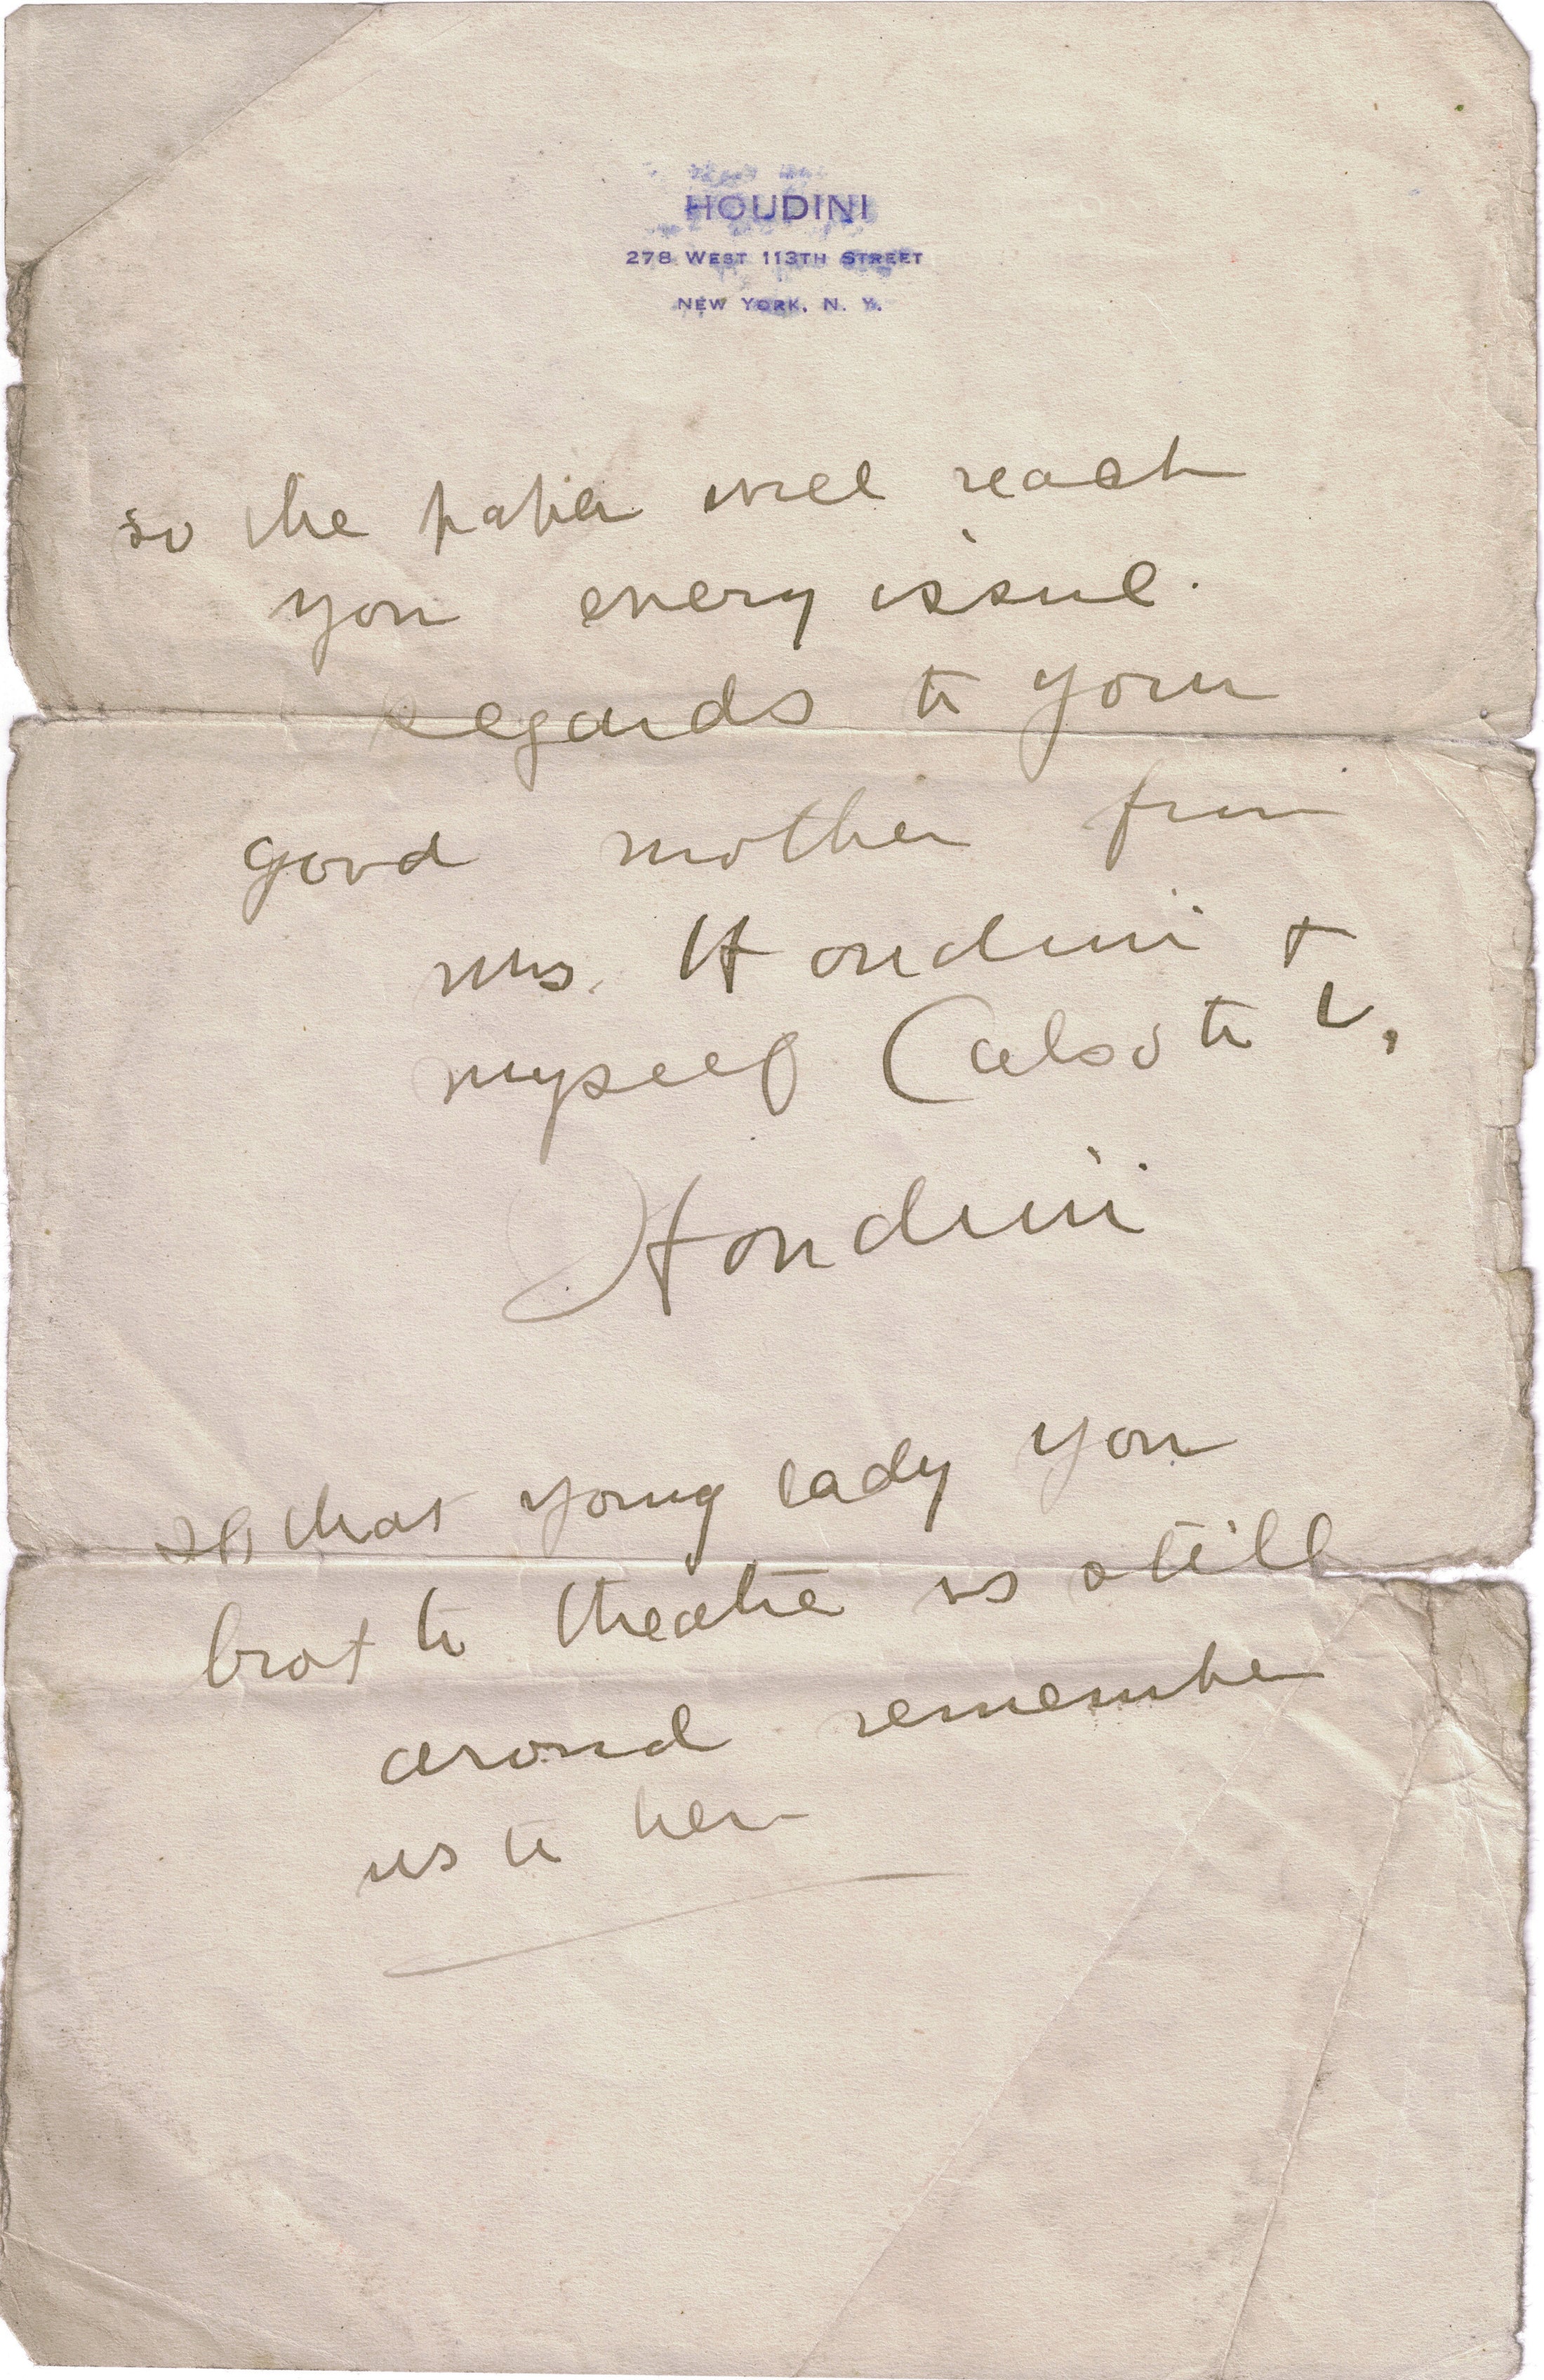 HOUDINI
278 WEST 113TH STREET
NEW YORK, N. Y.
so the paper will reach
you every issue.
Regards to your
good mother from
Mrs. Houdini +
myself (also to U,
Houdini
If that young lady you
brot to theatre is still
around remember
us to her